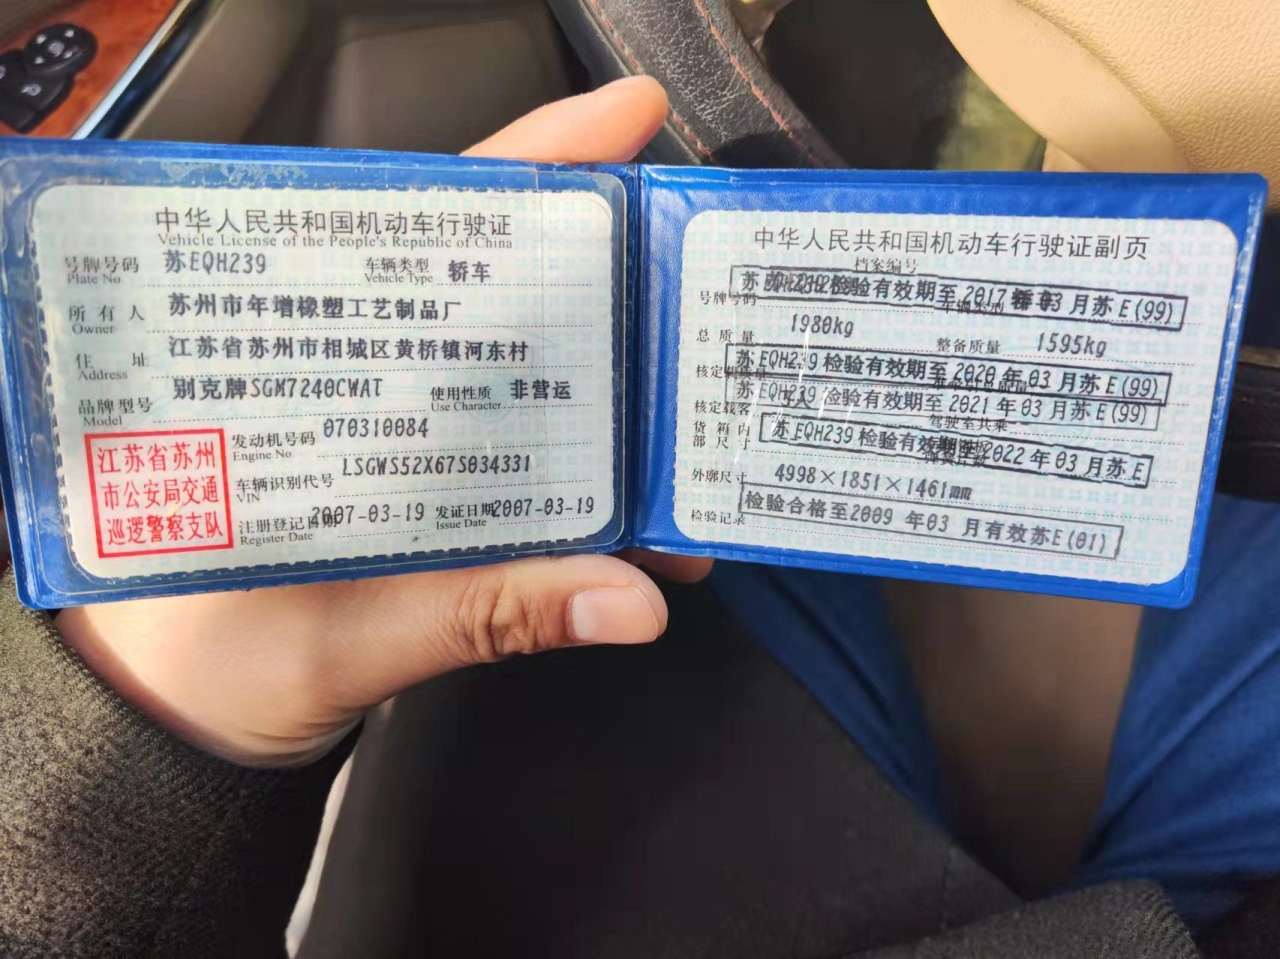 中华人民共和国机动车行驶证
Vehicle License of the People's Republic of China
号牌号码 苏EQH239 车辆类型 轿车
Plate No Vehicle Type
所有人 苏州市年增橡塑工艺制品厂
Owner
住址 江苏省苏州市相城区黄桥镇河东村
Address
品牌型号 别克牌SGM7240CWAT 使用性质 非营运
Model Use Character
江苏省苏州
市公安局交通
巡逻警察支队
发动机号码 070310084
Engine No
车辆识别代号 LSGWS52X67S034331
VIN
注册登记日期 2007-03-19 发证日期 2007-03-19
Register Date Issue Date
中华人民共和国机动车行驶证副页
档案编号
苏 检验有效期至2017年03月苏E(99)
号牌号码
总质量 1980kg 整备质量 1595kg
苏EQH239检验有效期至2020年03月苏E(99)
苏EQH239检验有效期至2021年03月苏E(99)
核定载客 驾驶室共乘
苏EQH239检验有效期至2022年03月苏E
货箱内
部尺寸
外廓尺寸 4998×1851×1461mm
检验合格至2009年03月有效苏E(01)
检验记录